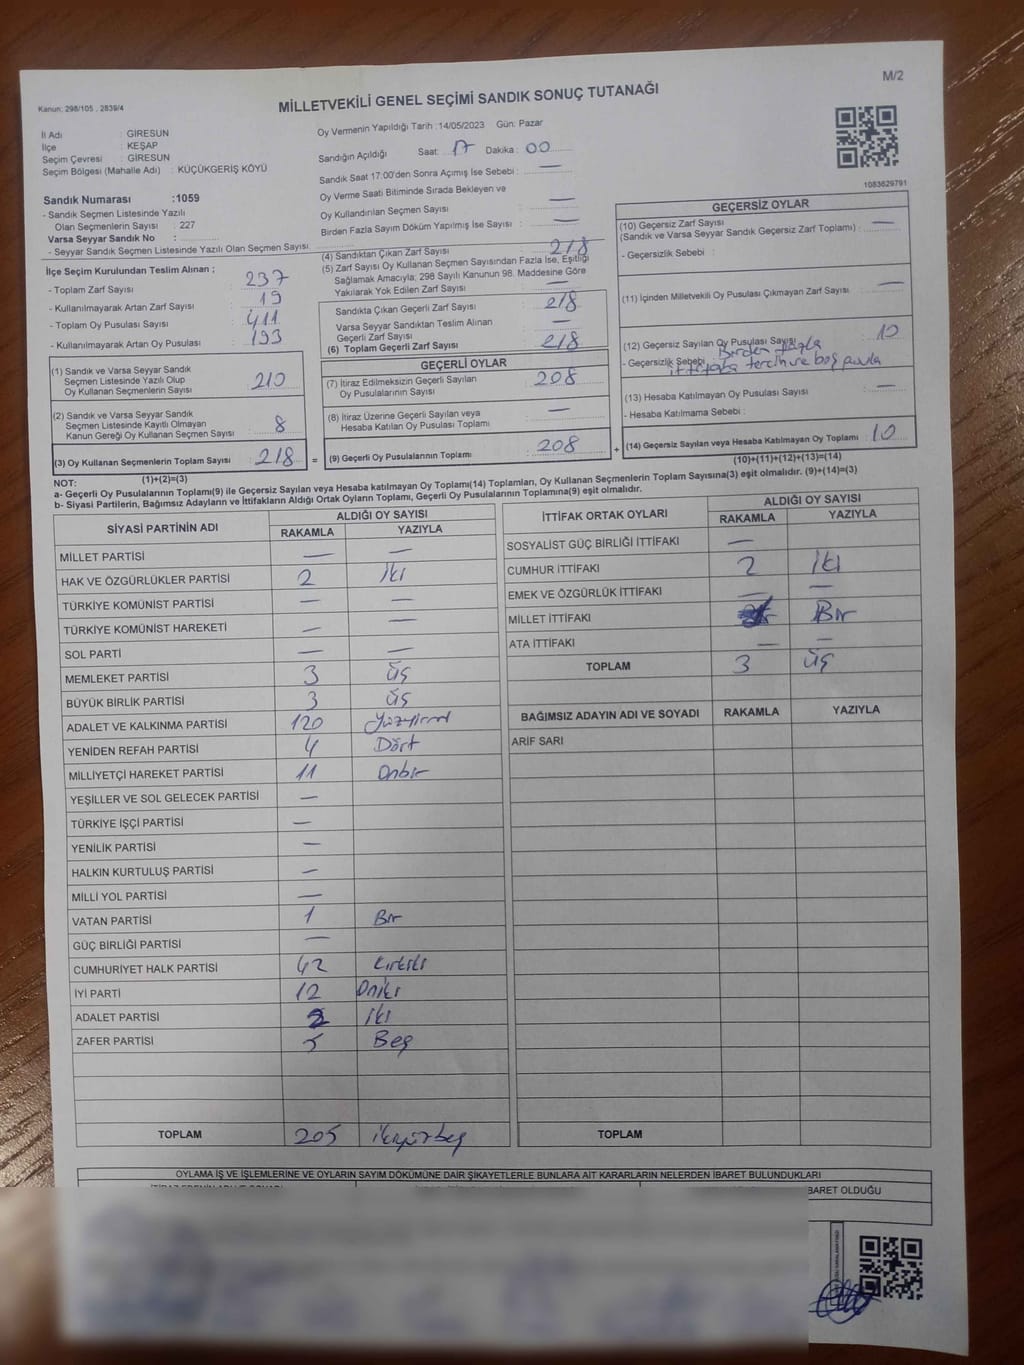 M/2
Kanun: 298/105 , 2839/4
MİLLETVEKİLİ GENEL SEÇİMİ SANDIK SONUÇ TUTANAĞI
İl Adı : GİRESUN
İlçe : KEŞAP
Seçim Çevresi : GİRESUN
Seçim Bölgesi (Mahalle Adı) : KÜÇÜKGERİŞ KÖYÜ
Sandık Numarası :1059
- Sandık Seçmen Listesinde Yazılı
Olan Seçmenlerin Sayısı : 227
Varsa Seyyar Sandık No :
- Seyyar Sandık Seçmen Listesinde Yazılı Olan Seçmen Sayısı
Oy Vermenin Yapıldığı Tarih :14/05/2023 Gün: Pazar
Sandığın Açıldığı Saat: 17 Dakika : 00
Sandık Saat 17:00'den Sonra Açımış İse Sebebi : —
Oy Verme Saati Bitiminde Sırada Bekleyen ve
Oy Kullandırılan Seçmen Sayısı : —
Birden Fazla Sayım Döküm Yapılmış İse Sayısı : —
1083629791
İlçe Seçim Kurulundan Teslim Alınan ;
- Toplam Zarf Sayısı : 237
- Kullanılmayarak Artan Zarf Sayısı : 19
- Toplam Oy Pusulası Sayısı : 411
- Kullanılmayarak Artan Oy Pusulası : 193
(1) Sandık ve Varsa Seyyar Sandık
Seçmen Listesinde Yazılı Olup
Oy Kullanan Seçmenlerin Sayısı : 210
(2) Sandık ve Varsa Seyyar Sandık
Seçmen Listesinde Kayıtlı Olmayan
Kanun Gereği Oy Kullanan Seçmen Sayısı : 8
(3) Oy Kullanan Seçmenlerin Toplam Sayısı : 218 =
(1)+(2)=(3)
(4) Sandıktan Çıkan Zarf Sayısı : 218
(5) Zarf Sayısı Oy Kullanan Seçmen Sayısından Fazla İse, Eşitliği
Sağlamak Amacıyla; 298 Sayılı Kanunun 98. Maddesine Göre
Yakılarak Yok Edilen Zarf Sayısı : —
Sandıkta Çıkan Geçerli Zarf Sayısı : 218
Varsa Seyyar Sandıktan Teslim Alınan
Geçerli Zarf Sayısı : —
(6) Toplam Geçerli Zarf Sayısı : 218
GEÇERLİ OYLAR
(7) İtiraz Edilmeksizin Geçerli Sayılan
Oy Pusulalarının Sayısı : 208
(8) İtiraz Üzerine Geçerli Sayılan veya
Hesaba Katılan Oy Pusulası Toplamı : —
(9) Geçerli Oy Pusulalarının Toplamı : 208 +
GEÇERSİZ OYLAR
(10) Geçersiz Zarf Sayısı
(Sandık ve Varsa Seyyar Sandık Geçersiz Zarf Toplamı) : —
- Geçersizlik Sebebi :
(11) İçinden Milletvekili Oy Pusulası Çıkmayan Zarf Sayısı : —
(12) Geçersiz Sayılan Oy Pusulası Sayısı : 10
- Geçersizlik Sebebi : Birden fazla
ittifaka tercih ve boş pusula
(13) Hesaba Katılmayan Oy Pusulası Sayısı : —
- Hesaba Katılmama Sebebi :
(14) Geçersiz Sayılan veya Hesaba Katılmayan Oy Toplamı : 10
(10)+(11)+(12)+(13)=(14)
NOT:
a- Geçerli Oy Pusulalarının Toplamı(9) ile Geçersiz Sayılan veya Hesaba katılmayan Oy Toplamı(14) Toplamları, Oy Kullanan Seçmenlerin Toplam Sayısına(3) eşit olmalıdır. (9)+(14)=(3)
b- Siyasi Partilerin, Bağımsız Adayların ve İttifakların Aldığı Ortak Oyların Toplamı, Geçerli Oy Pusulalarının Toplamına(9) eşit olmalıdır.
SİYASİ PARTİNİN ADI ALDIĞI OY SAYISI
RAKAMLA YAZIYLA
MİLLET PARTİSİ — —
HAK VE ÖZGÜRLÜKLER PARTİSİ 2 İki
TÜRKİYE KOMÜNİST PARTİSİ — —
TÜRKİYE KOMÜNİST HAREKETİ — —
SOL PARTİ — —
MEMLEKET PARTİSİ 3 Üç
BÜYÜK BİRLİK PARTİSİ 3 Üç
ADALET VE KALKINMA PARTİSİ 120 Yüzyirmi
YENİDEN REFAH PARTİSİ 4 Dört
MİLLİYETÇİ HAREKET PARTİSİ 11 Onbir
YEŞİLLER VE SOL GELECEK PARTİSİ —
TÜRKİYE İŞÇİ PARTİSİ —
YENİLİK PARTİSİ —
HALKIN KURTULUŞ PARTİSİ —
MİLLİ YOL PARTİSİ —
VATAN PARTİSİ 1 Bir
GÜÇ BİRLİĞİ PARTİSİ —
CUMHURİYET HALK PARTİSİ 42 Kırkiki
İYİ PARTİ 12 Oniki
ADALET PARTİSİ 2 İki
ZAFER PARTİSİ 5 Beş
TOPLAM 205 ikiyüzbeş
İTTİFAK ORTAK OYLARI ALDIĞI OY SAYISI
RAKAMLA YAZIYLA
SOSYALİST GÜÇ BİRLİĞİ İTTİFAKI —
CUMHUR İTTİFAKI 2 İki
EMEK VE ÖZGÜRLÜK İTTİFAKI — —
MİLLET İTTİFAKI Bir
ATA İTTİFAKI — —
TOPLAM 3 Üç
BAĞIMSIZ ADAYIN ADI VE SOYADI RAKAMLA YAZIYLA
ARİF SARI
TOPLAM
OYLAMA İŞ VE İŞLEMLERİNE VE OYLARIN SAYIM DÖKÜMÜNE DAİR ŞİKAYETLERLE BUNLARA AİT KARARLARIN NELERDEN İBARET BULUNDUKLARI
BARET OLDUĞU